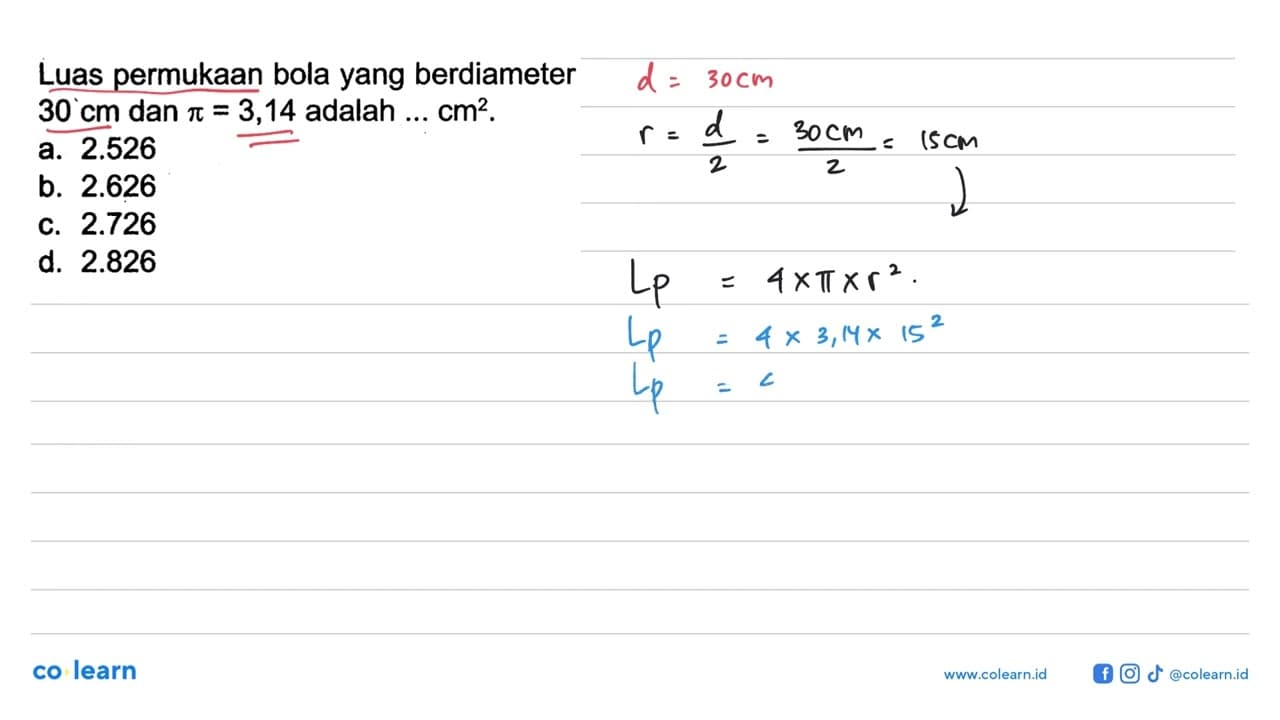 Luas permukaan bola yang berdiameter
30 cm dan π = 3,14 adalah ... cm².
a. 2.526
b. 2.626
c. 2.726
d. 2.826
d = 30 cm
r = d/2 = 30 cm/2 = 15 cm
Lp = 4 × π × r².
Lp = 4 × 3,14 × 15²
Lp =
co learn
www.colearn.id
@colearn.id